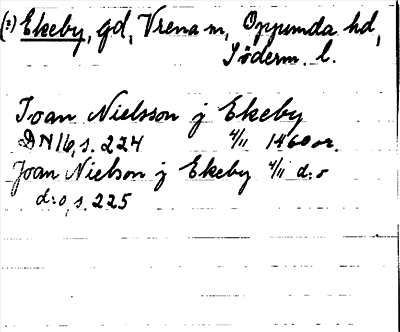 (2) Ekeby, gd, Vrena sn, Oppunda hd,
Söderm. l.
Joan Nielsson j Ekeby
DN 16, s. 224 4/11 1460 or.
Joan Nielson j Ekeby 4/11 d:o
d:o, s. 225